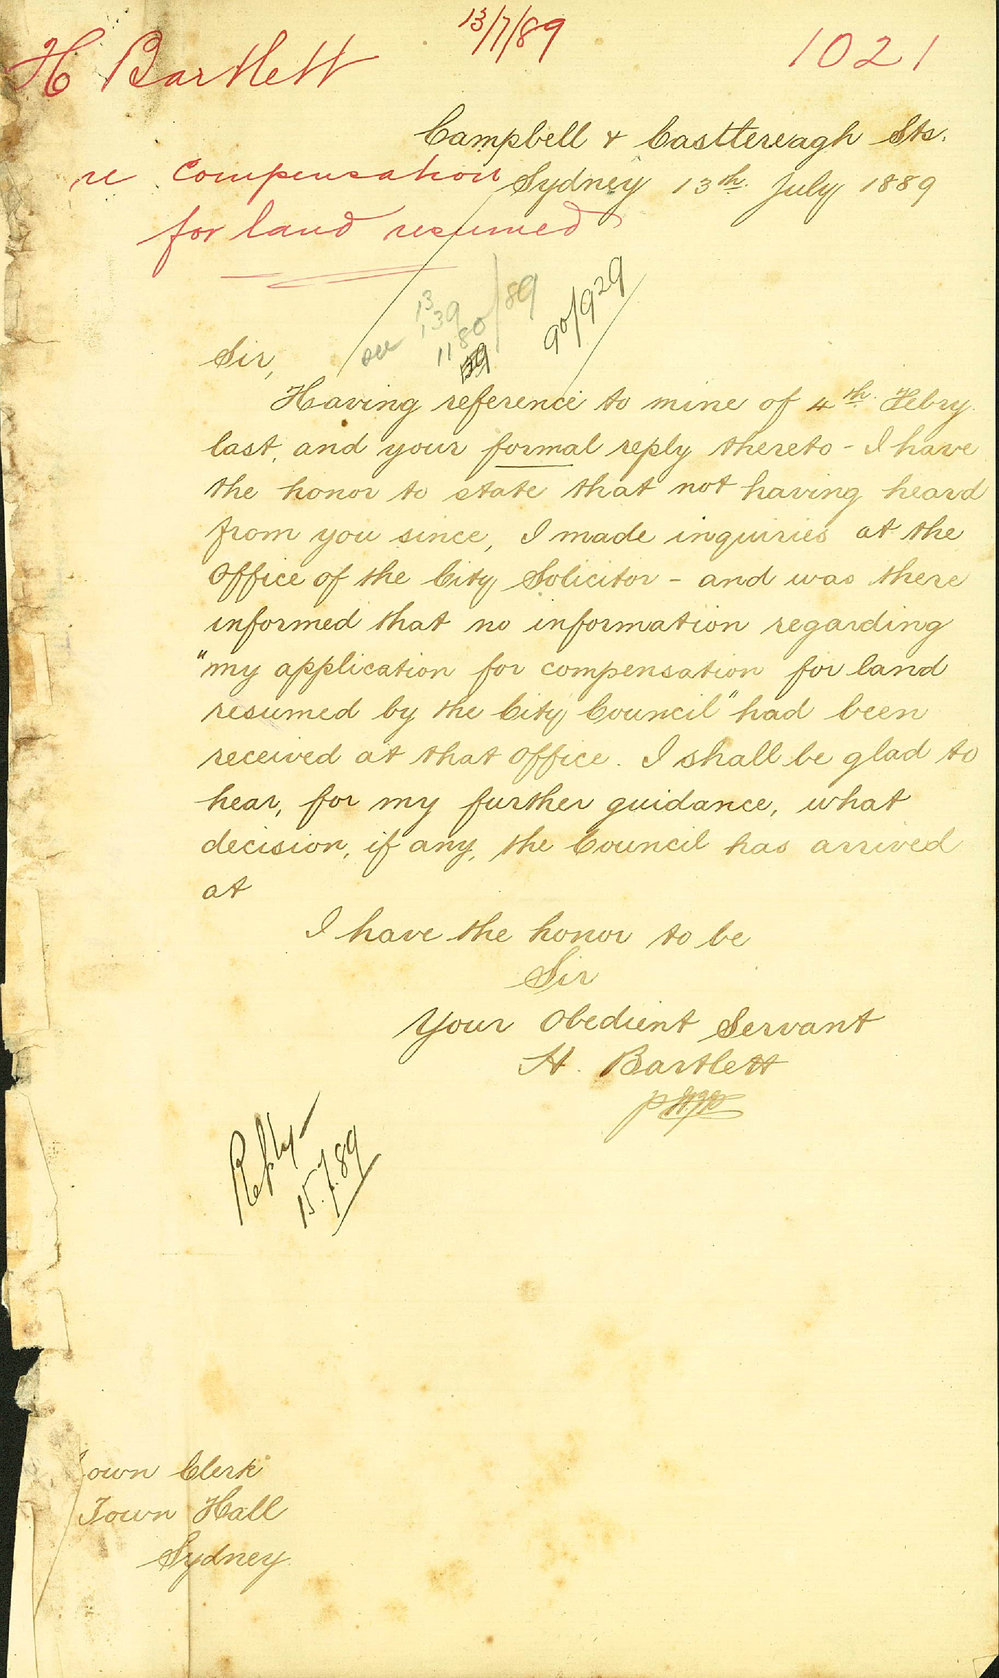 13/7/89
H Bartlett
1021
Campbell & Castlereagh Sts.
re compensation
Sydney 13th July 1889
for land resumed
see 13
139
1180 /89
90/929
Sir,
Having reference to mine of 4th Febry.
last, and your formal reply thereto - I have
the honor to state that not having heard
from you since, I made inquiries at the
Office of the City Solicitor - and was there
informed that no information regarding
"my application for compensation for land
resumed by the City Council" had been
received at that Office. I shall be glad to
hear, for my further guidance, what
decision, if any, the Council has arrived
at
I have the honor to be
Sir
Your Obedient Servant
H. Bartlett
Reply
15.7.89
Town Clerk
Town Hall
Sydney